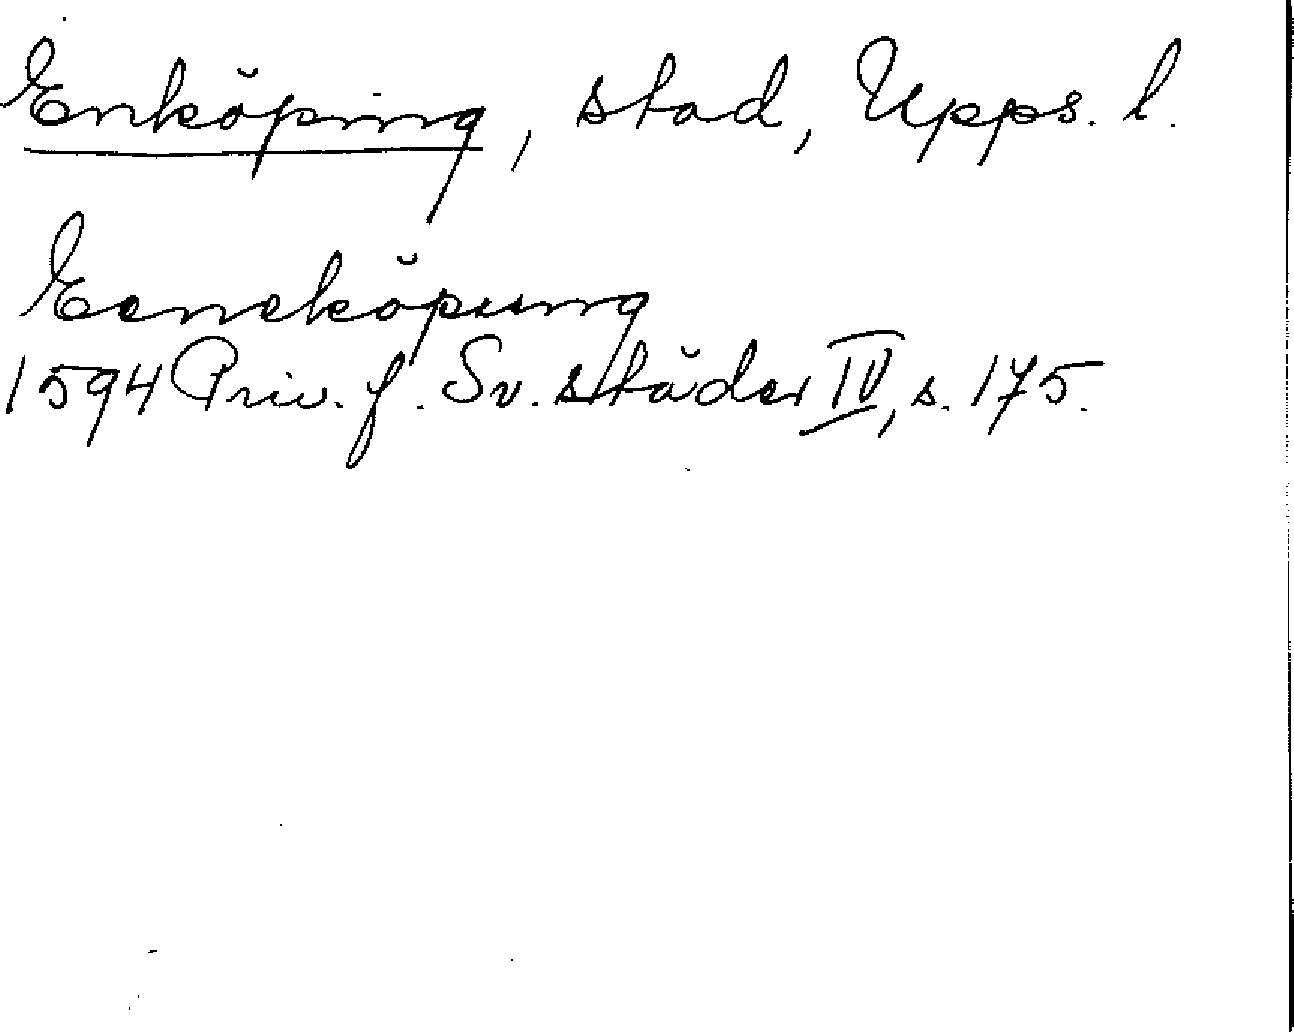 Enköping, stad, Upps. l.
Eeneköpung
1594 Priv. f. Sv. städer IV, s. 175.